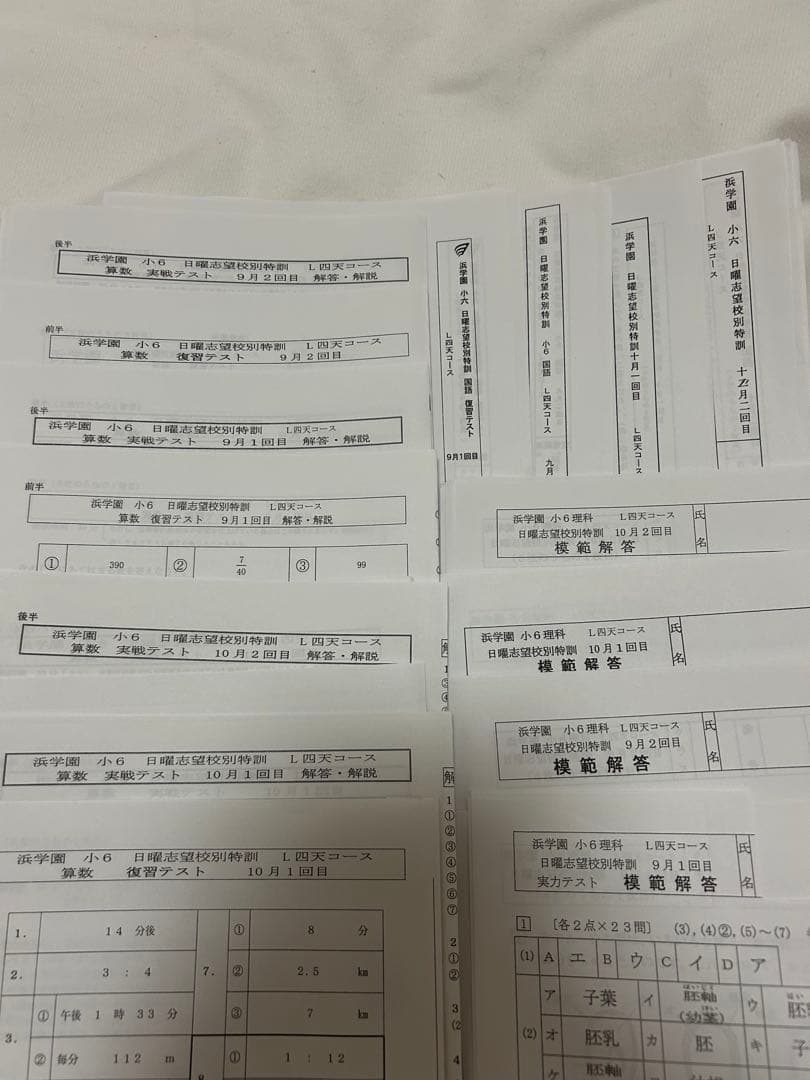 後半
浜学園 小6 日曜志望校別特訓 L四天コース
算数 実戦テスト 9月2回目 解答・解説
前半
浜学園 小6 日曜志望校別特訓 L四天コース
算数 復習テスト 9月2回目
後半
浜学園 小6 日曜志望校別特訓 L四天コース
算数 実戦テスト 9月1回目 解答・解説
前半
浜学園 小6 日曜志望校別特訓 L四天コース
算数 復習テスト 9月1回目 解答・解説
① 390 ② 7/40 ③ 99
後半
浜学園 小6 日曜志望校別特訓 L四天コース
算数 実戦テスト 10月2回目 解答・解説
浜学園 小6 日曜志望校別特訓 L四天コース
算数 実戦テスト 10月1回目 解答・解説
浜学園 小6 日曜志望校別特訓 L四天コース
算数 復習テスト 10月1回目
1. 14 分後
2. 3 : 4
3. ① 午後 1 時 33 分
② 毎分 112 m
7. ① 8 分
② 2.5 km
③ 7 km
① 1 : 12
解
1
③
④
解
1
①
②
③
④
⑤
⑥
⑦
2
①
②
3
(2
4
浜学園 小六 日曜志望校別特訓 十 月二回目
L四天コース
浜学園 日曜志望校別特訓十月一回目 L四天コース
浜学園 日曜志望校別特訓 小6 国語 L四天コース 九月
浜学園 小六 日曜志望校別特訓 国語 復習テスト 9月1回目
L四天コース
浜学園 小6理科 L四天コース
日曜志望校別特訓 10月2回目
模範解答
氏名
浜学園 小6理科 L四天コース
日曜志望校別特訓 10月1回目
模範解答
氏名
浜学園 小6理科 L四天コース
日曜志望校別特訓 9月2回目
模範解答
氏名
浜学園 小6理科 L四天コース
日曜志望校別特訓 9月1回目
実力テスト 模範解答
氏名
1 [各2点×23問] (3),(4)②,(5)〜(7)
(1) A エ B ウ C イ D ア
(2) ア 子葉 イ 胚軸(幼茎) ウ
オ 胚乳 カ 胚 キ 子
ケ 胚軸